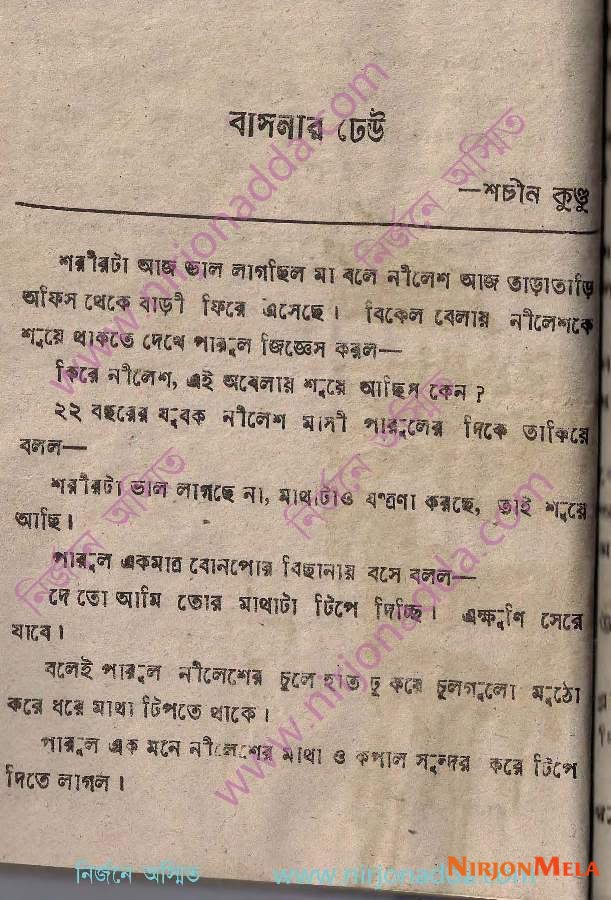 বাসনার ঢেউ
—শচীন কুণ্ডু
শরীরটা আজ ভাল লাগছিল মা বলে নীলেশ আজ তাড়াতাড়ি
অফিস থেকে বাড়ী ফিরে এসেছে। বিকেল বেলায় নীলেশকে
শুয়ে থাকতে দেখে পারুল জিজ্ঞেস করল—
কিরে নীলেশ, এই অবেলায় শুয়ে আছিস কেন ?
২২ বছরের যুবক নীলেশ মাসী পারুলের দিকে তাকিয়ে
বলল—
শরীরটা ভাল লাগছে না, মাথাটাও যন্ত্রণা করছে, তাই শুয়ে
আছি।
পারুল একমাত্র বোনপোর বিছানায় বসে বলল—
দে তো আমি তোর মাথাটা টিপে দিচ্ছি। এক্ষুণি সেরে
যাবে।
বলেই পারুল নীলেশের চুলে হাত ঢু করে চুলগুলো মুঠো
করে ধরে মাথা টিপতে থাকে।
পারুল এক মনে নীলেশের মাথা ও কপাল সুন্দর করে টিপে
দিতে লাগল।
নির্জনে অস্মিত www.nirjonadda.com
NIRJONMELA
www.nirjonadda.com
নির্জনে অস্মিত
নির্জনে অস্মিত
নির্জনে অস্মিত
www.nirjonadda.com